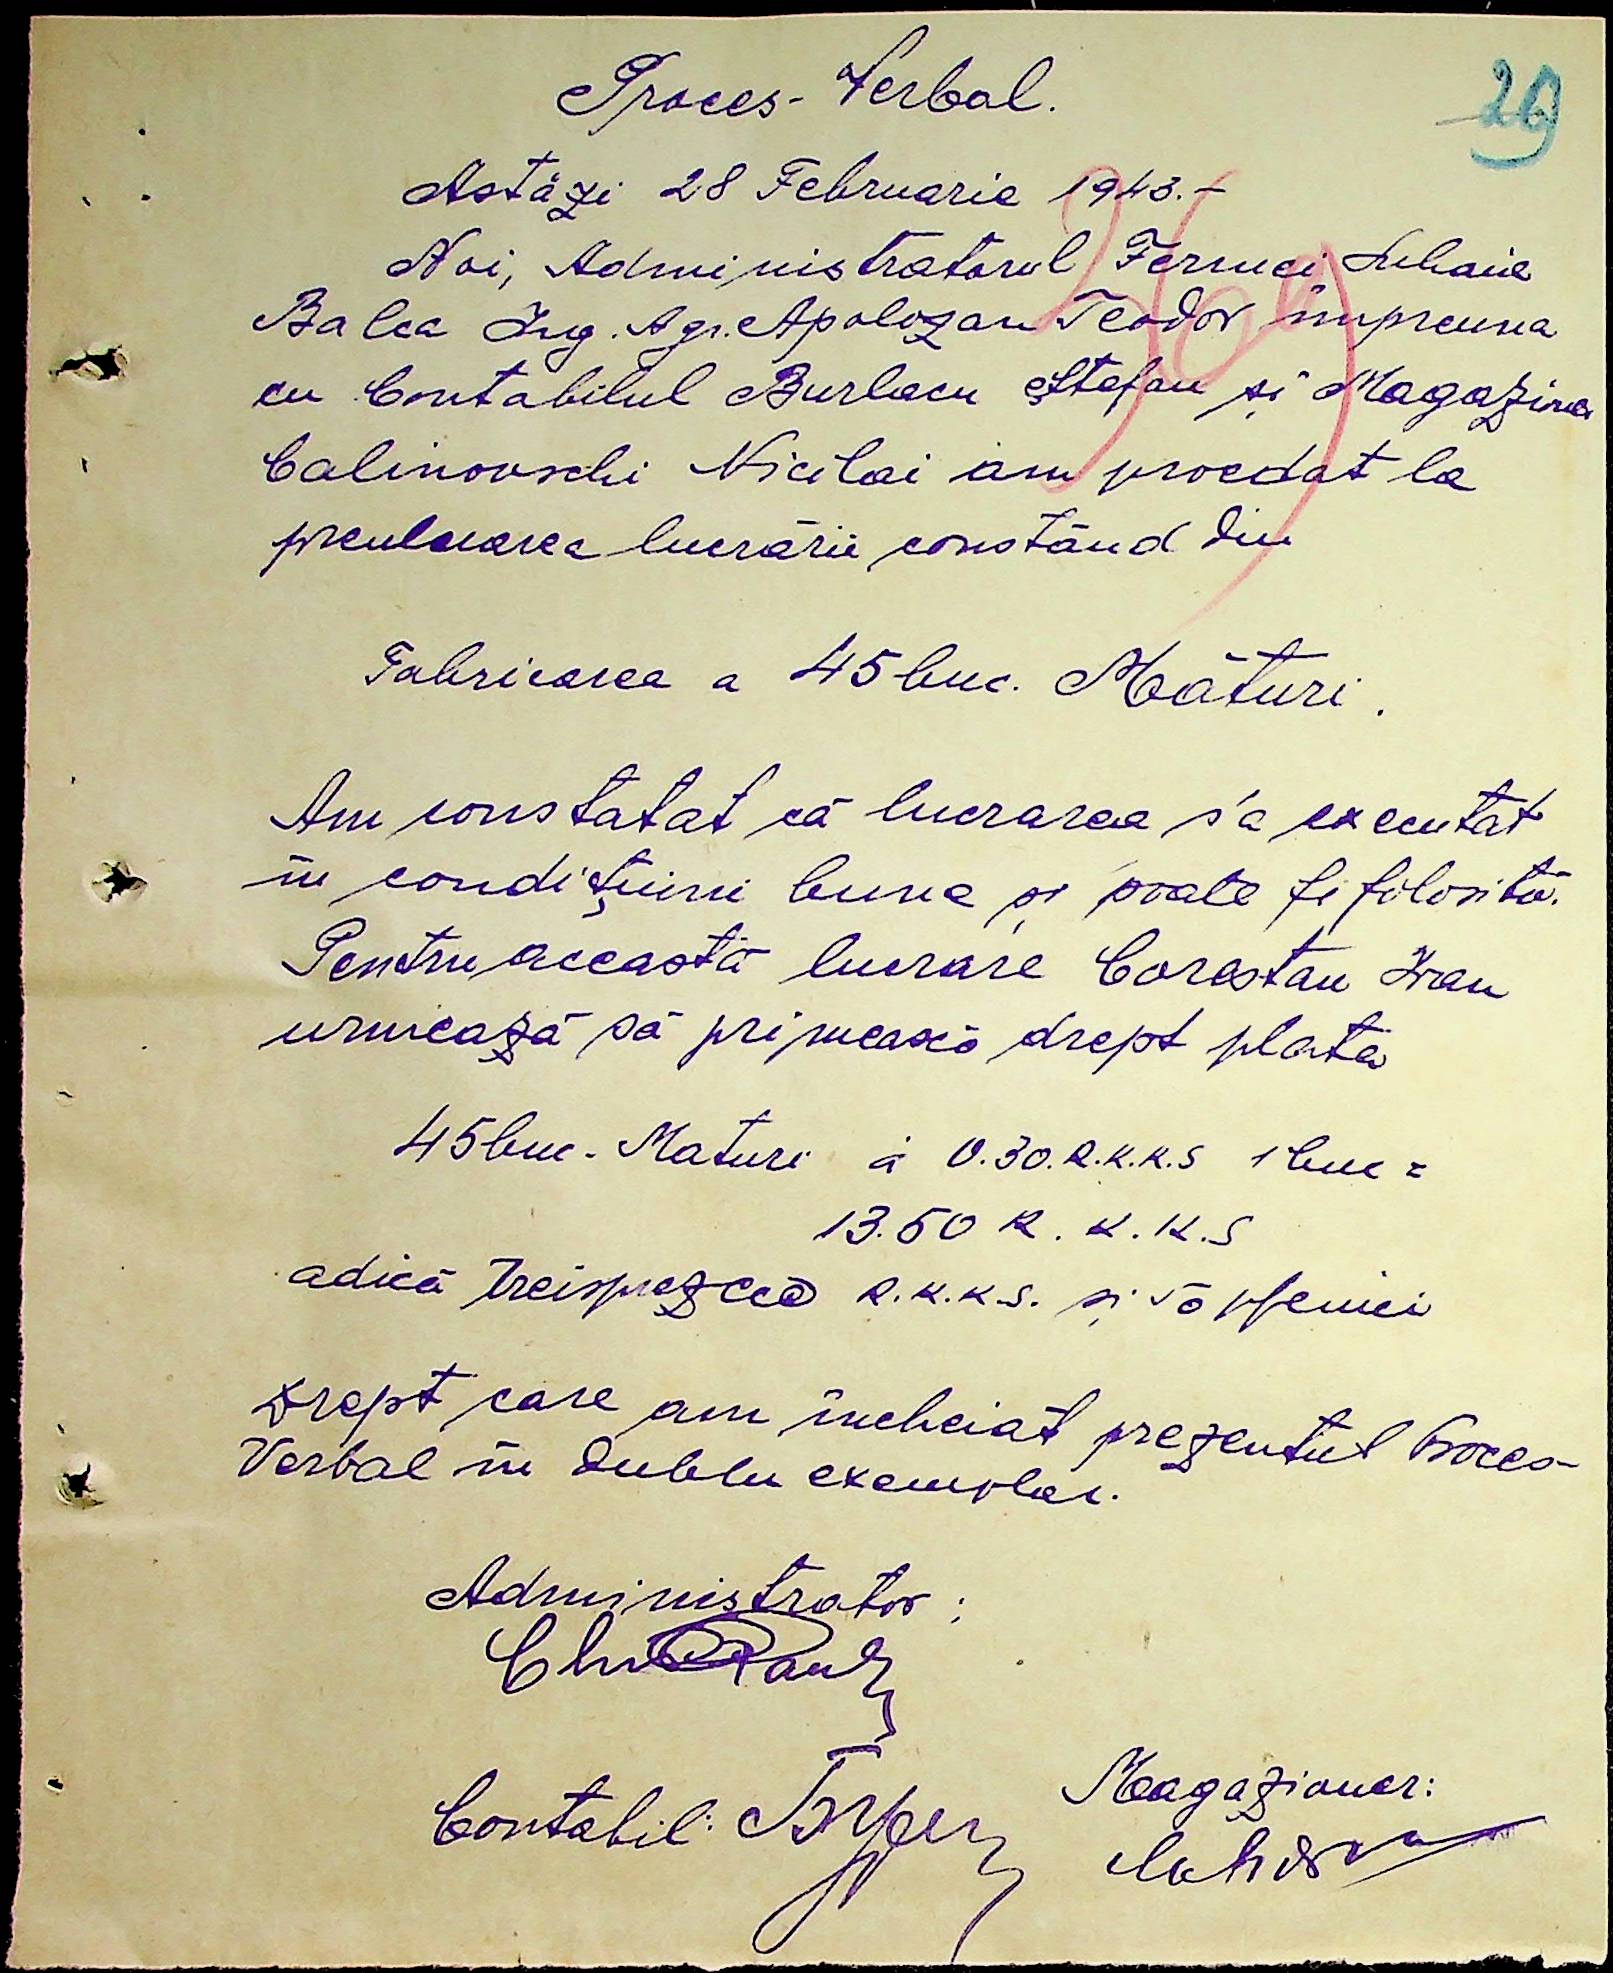 Proces-Verbal.
29
Astăzi 28 Februarie 1943.-
Noi, Administratorul Fermei Suhaia
Balca Ing. Agr. Apolozan Teodor împreuna
cu Contabilul Burlacu Ștefan și Magazine
Calinovschi Nicilai am procedat la
preuluarea lucrării constând din
Fabricarea a 45 buc. Mături.
Am constatat că lucrarea s'a executat
în condițiuni bune și poate fi folosită.
Pentru această lucrare Corestan Ivan
urmează să primească drept plată
45 buc. Maturi à 0.30. R.K.K.S 1 buc =
13.50 R.K.K.S
adică treisprezece R.K.K.S. și 50 pfenici
Drept care am încheiat prezentul Proces-
Verbal în dublu exemplar.
Administrator:
Contabil:
Magazioner: